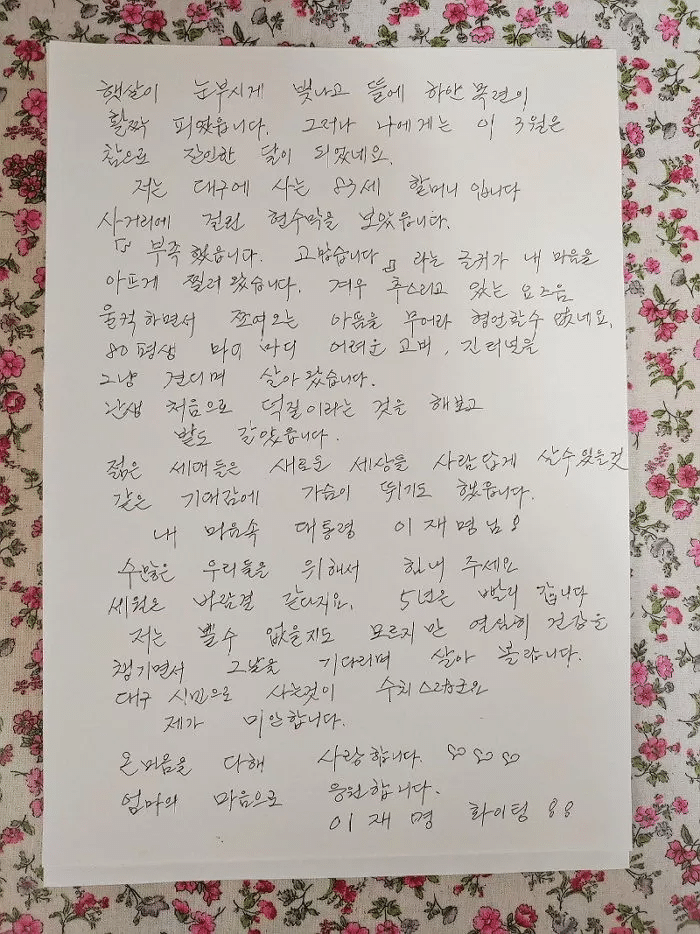 햇살이 눈부시게 빛나고 뜰에 하얀 목련이
활짝 피었읍니다. 그러나 나에게는 이 3월은
참으로 잔인한 달이 되었네요.
저는 대구에 사는 83세 할머니 입니다
사거리에 걸린 현수막을 보았읍니다.
『부족했읍니다. 고맙습니다』 라는 글귀가 내 마음을
아프게 찔러 왔습니다. 겨우 추스리고 있는 요즈음
울컥 하면서 쪼여오는 아픔을 무어라 형언할수 없네요.
80평생 마이 마디 어려운 고비, 긴 터널을
그냥 견디며 살아 왔습니다.
난생 처음으로 덕질이라는 것을 해보고
밤도 같았읍니다.
젊은 세대들은 새로운 세상을 사람답게 살수있을것
같은 기대감에 가슴이 뛰기도 했읍니다.
내 마음속 대통령 이재명님!
수많은 우리들을 위해서 힘내 주세요
세월은 바람결 같다지요. 5년은 빨리 갑니다
저는 뵐수 없을지도 모르지만 열심히 건강을
챙기면서 그날을 기다리며 살아 볼랍니다.
대구 시민으로 사는것이 수치스러웁군요
제가 미안합니다.
온마음을 다해 사랑합니다. ♡♡♡
엄마의 마음으로 응원합니다.
이재명 화이팅!!